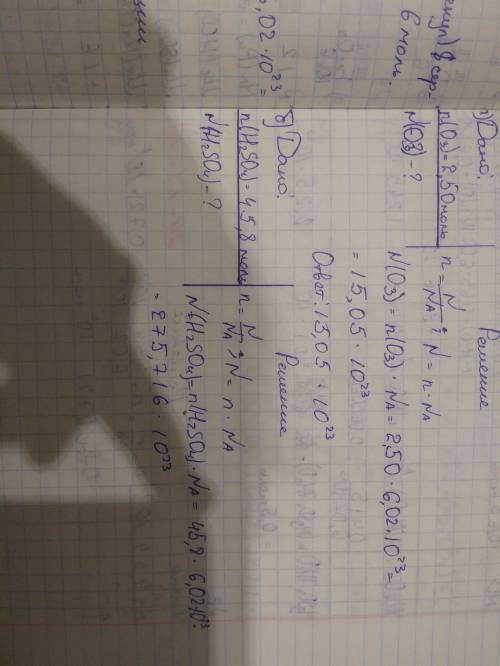 6 моль.
,02·10²³ =
а) Дано:
n(O₃)=2,50моль
N(O₃)-?
Решение
n = N/NA ; N = n · NA
N(O₃) = n(O₃) · NA = 2,50 · 6,02·10²³ =
= 15,05 · 10²³
Ответ: 15,05 · 10²³
б) Дано:
n(H₂SO₄)=45,8 моль
N(H₂SO₄)-?
Решение
n = N/NA ; N = n · NA
N(H₂SO₄)=n(H₂SO₄)·NA = 45,8 · 6,02·10²³ =
= 275,716 · 10²³